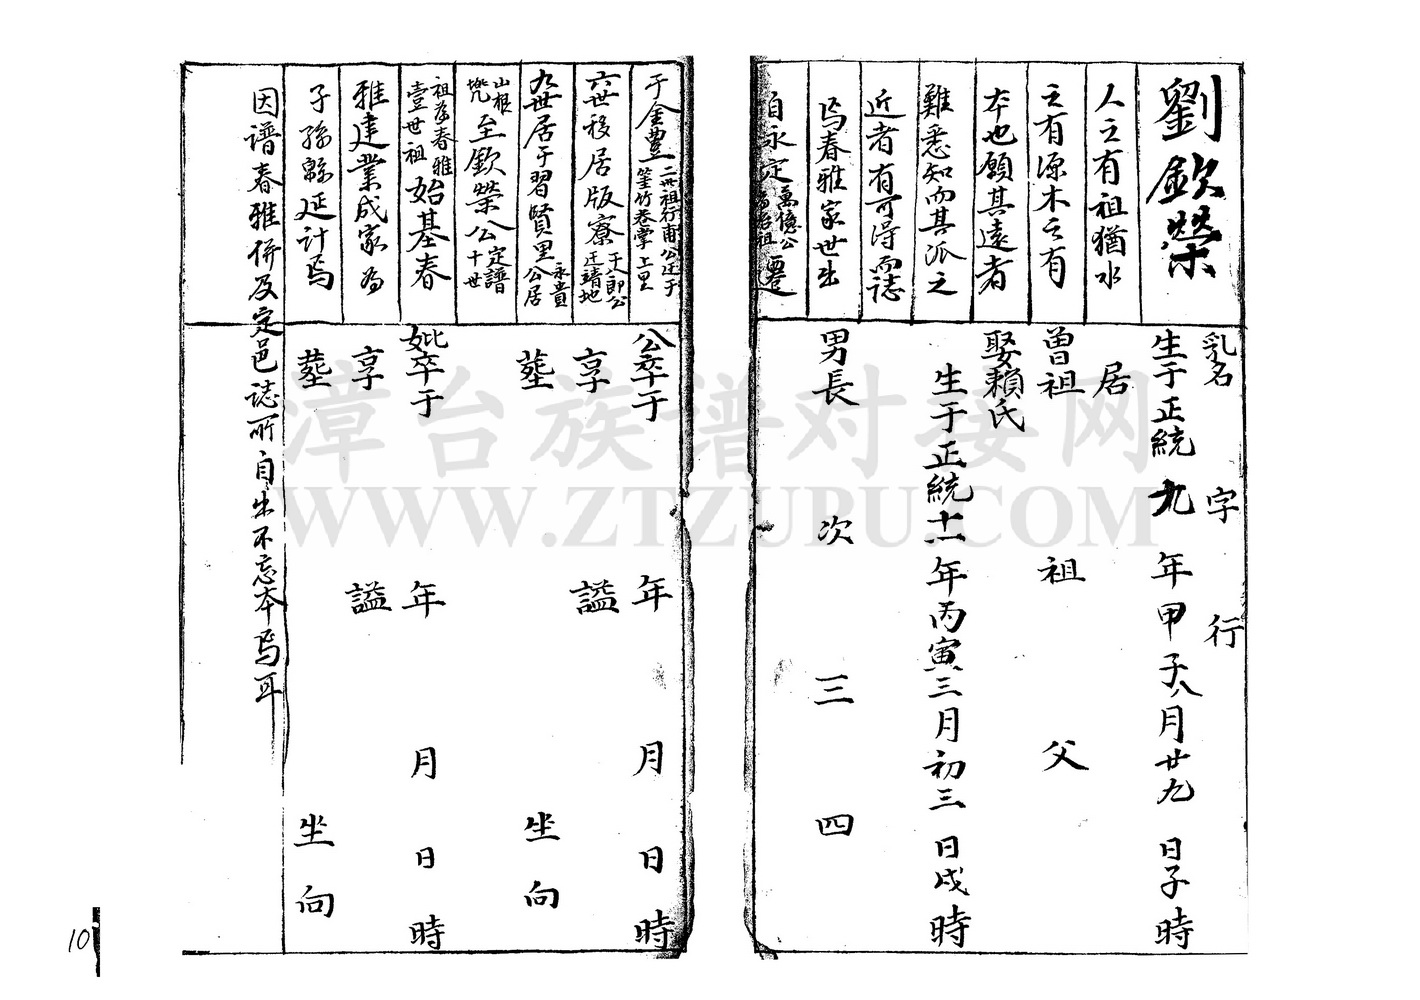 劉欽榮
人之有祖猶水
之有源木之有
本也願其遠者
難悉知而其派之
近者有可得而誌
焉春雅家世出
自永定萬億公為始祖遷
于金豐二世祖行甫公迁于筀竹巷掌上里
六世移居版寮千八郎公迁靖地
九世居于習賢里永貴公居
山根凹至欽榮公定譜十世
祖為春雅壹世祖始基春
雅建業成家為
子孫緜延計焉
因譜春雅併及定邑誌所自出不忘本焉耳
乳名 字 行
生于正統九年甲子八月廿九日子時
居
曽祖 祖 父
娶賴氏
生于正統十一年丙寅三月初三日戌時
男長 次 三 四
公卒于 年 月 日 時
享 謚
葬 坐 向
妣卒于 年 月 日 時
享 謚
葬 坐 向
漳台族谱对接网
WWW.ZTZUPU.COM
10